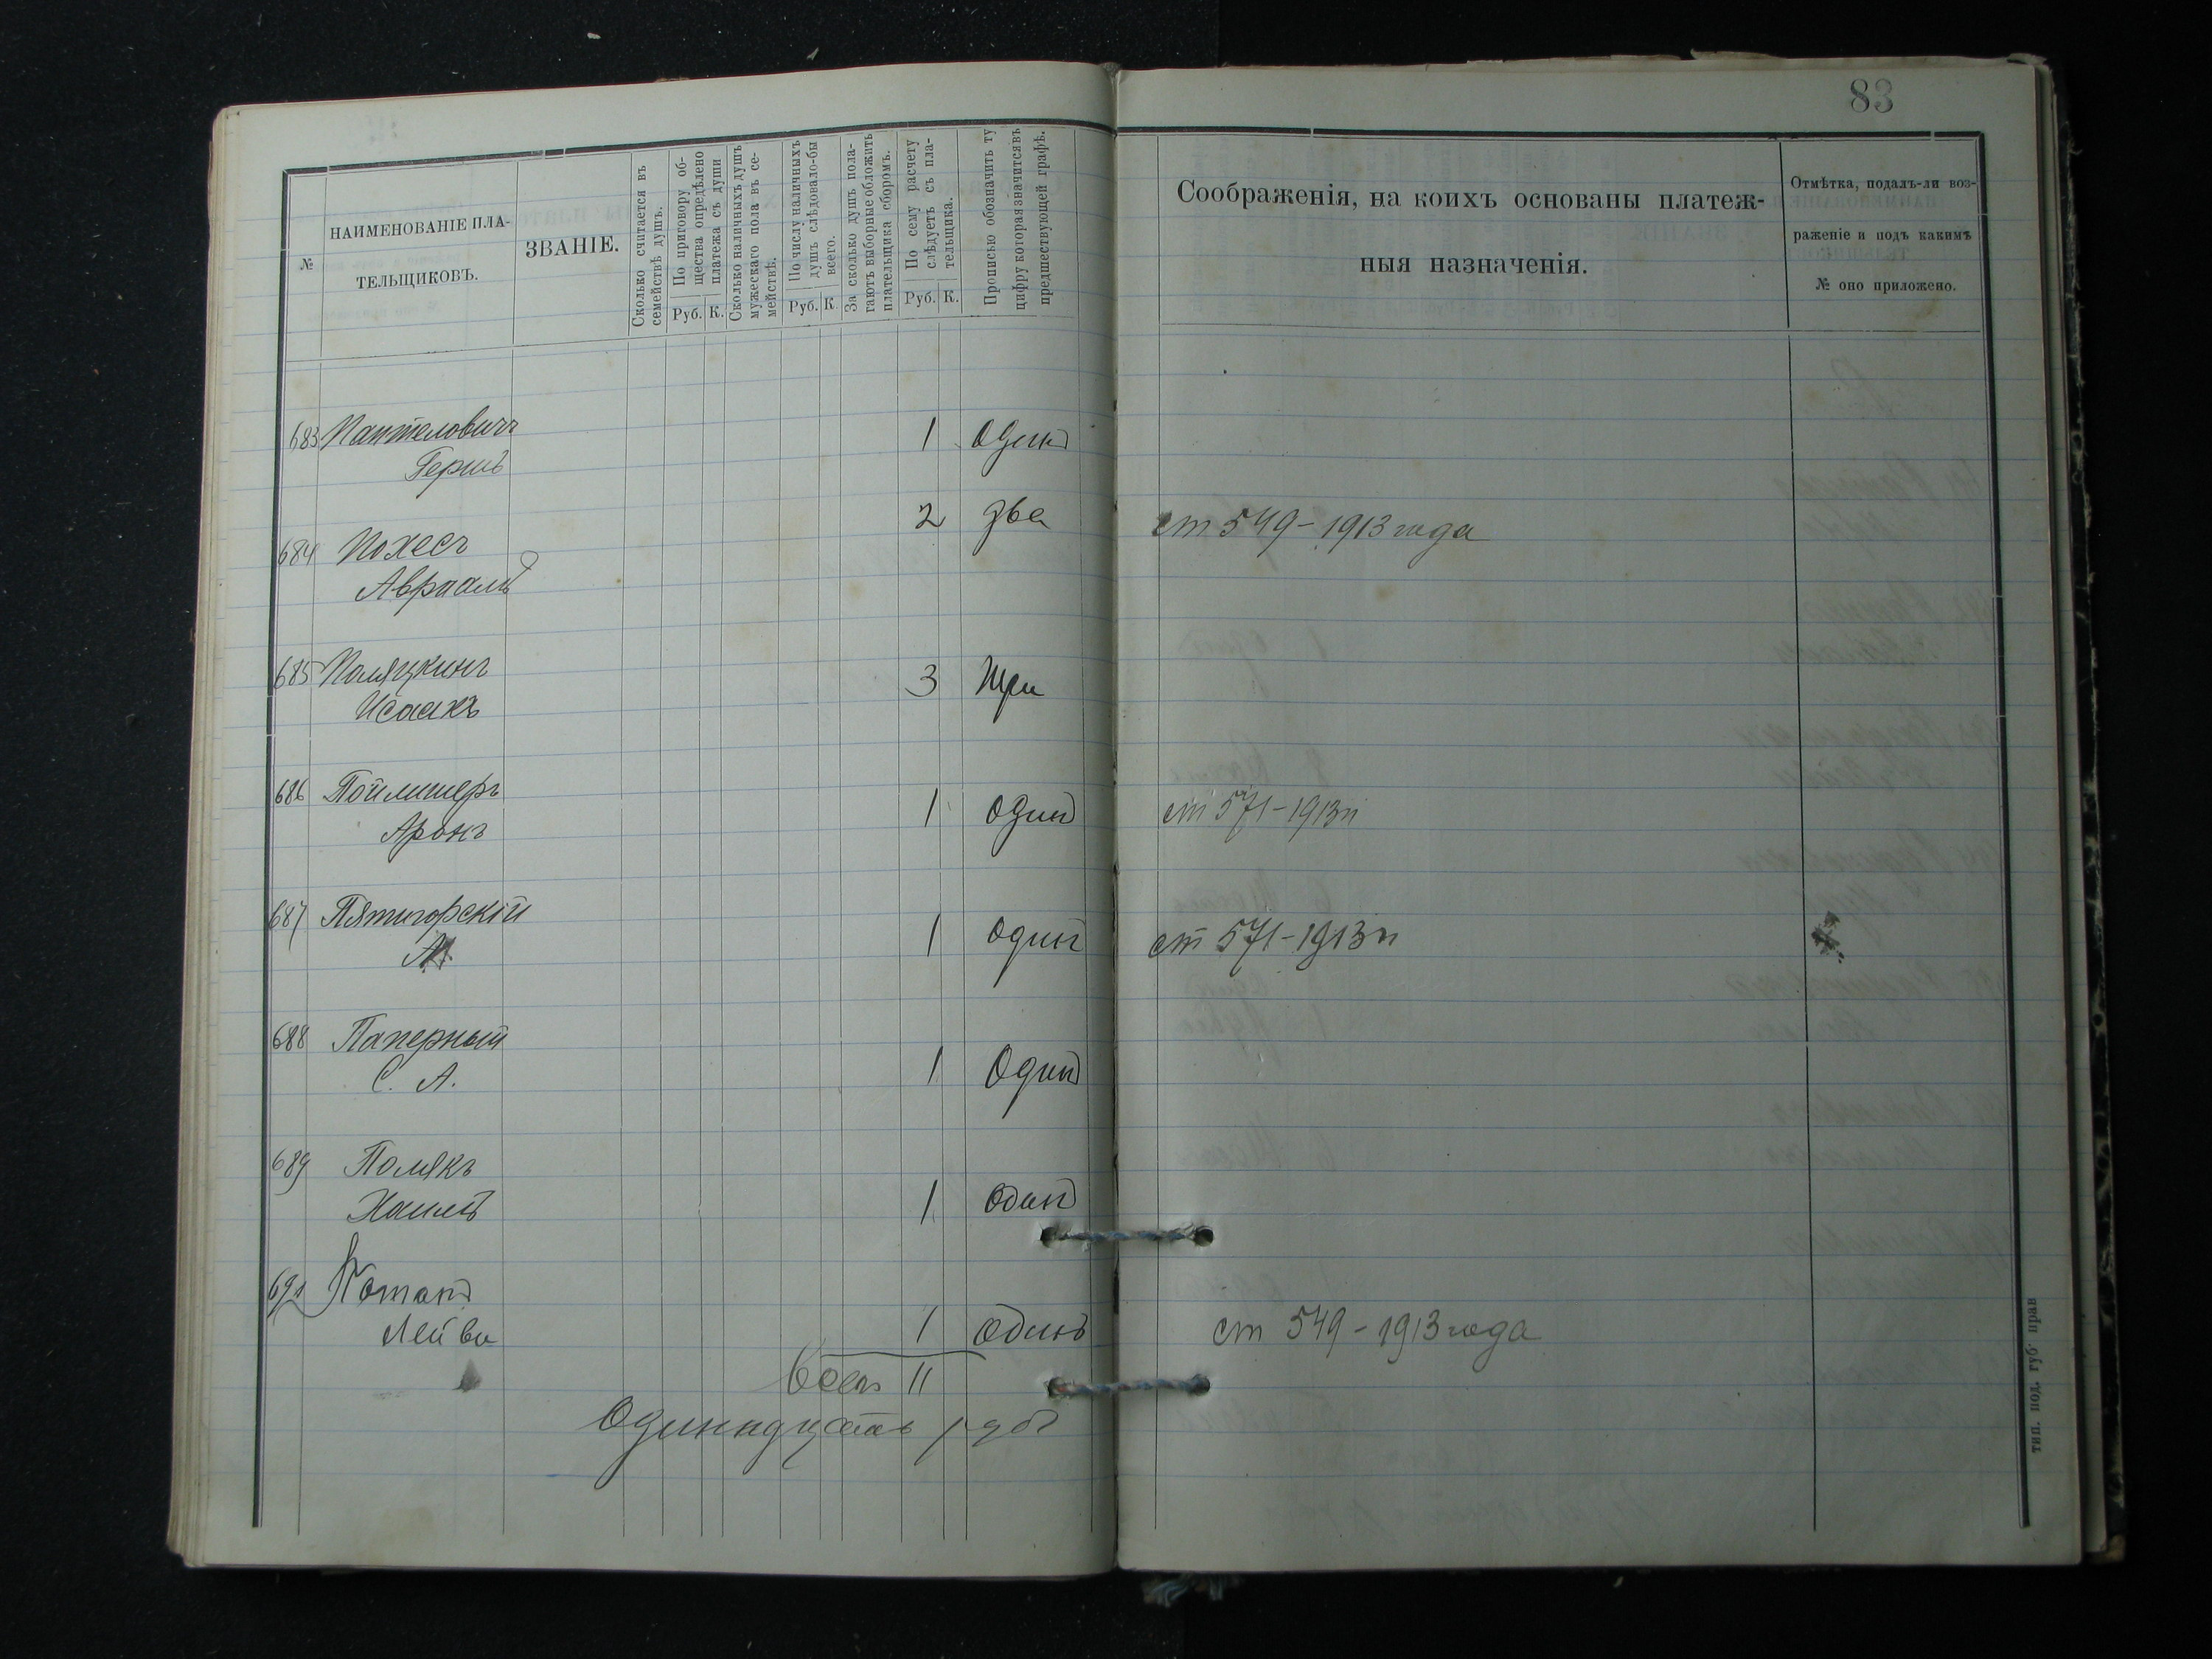 83
№
НАИМЕНОВАНІЕ ПЛА-
ТЕЛЬЩИКОВЪ.
ЗВАНІЕ.
Сколько считается въ
семействѣ душъ.
По приговору об-
щества опредѣлено
платежа съ души
Руб. К.
Сколько наличныхъ душъ
мужескаго пола въ се-
мействѣ.
По числу наличныхъ
душъ слѣдовало-бы
всего.
Руб. К.
За сколько душъ пола-
гаютъ выборные обложить
плательщика сборомъ.
По сему расчету
слѣдуетъ съ пла-
тельщика.
Руб. К.
Прописью обозначить ту
цифру которая значится въ
предшествующей графѣ.
Соображенія, на коихъ основаны платеж-
ныя назначенія.
Отмѣтка, подалъ-ли воз-
раженіе и подъ какимъ
№ оно приложено.
683 Пантеловичъ 1 Одинъ
Гершъ
684 Похесъ 2 два ст 549 - 1913 года
Авраамъ
685 Поляцкинъ 3 Три
Исаакъ
686 Пойлишеръ 1 Один ст 571 - 1913 г
Аронъ
687 Пятигорскій 1 один ст 571 - 1913 г
А
688 Паперный 1 Один
С. А.
689 Полякъ 1 один
Хаимъ
Потакъ
Лейви 1 один ст 549 - 1913 года
Всего 11
Одинадцать руб
тип. под. губ. прав